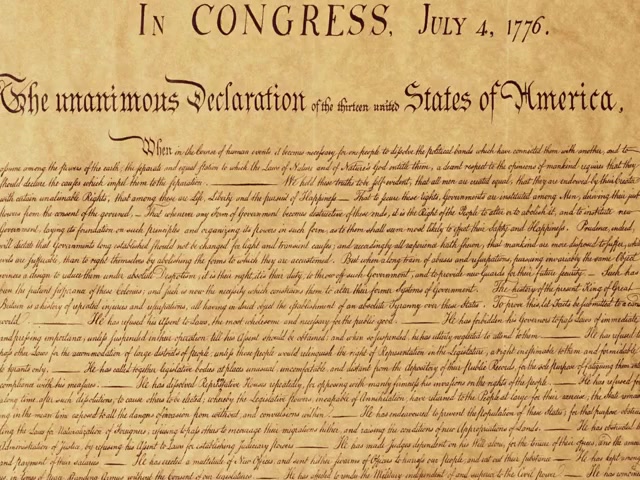 In CONGRESS, July 4, 1776.
The unanimous Declaration of the thirteen united States of America,
When in the Course of human events it becomes necessary for one people to dissolve the political bands which have connected them with another, and to
assume among the powers of the earth, the separate and equal station to which the Laws of Nature and of Nature's God entitle them, a decent respect to the opinions of mankind requires that they
should declare the causes which impel them to the separation. — We hold these truths to be self-evident, that all men are created equal, that they are endowed by their Creator
with certain unalienable Rights, that among these are Life, Liberty and the pursuit of Happiness. — That to secure these rights, Governments are instituted among Men, deriving their just
powers from the consent of the governed, — That whenever any Form of Government becomes destructive of these ends, it is the Right of the People to alter or to abolish it, and to institute new
Government, laying its foundation on such principles and organizing its powers in such form, as to them shall seem most likely to effect their Safety and Happiness. Prudence, indeed,
will dictate that Governments long established should not be changed for light and transient causes; and accordingly all experience hath shewn, that mankind are more disposed to suffer, while
evils are sufferable, than to right themselves by abolishing the forms to which they are accustomed. But when a long train of abuses and usurpations, pursuing invariably the same Object
evinces a design to reduce them under absolute Despotism, it is their right, it is their duty, to throw off such Government, and to provide new Guards for their future security. — Such has
been the patient sufferance of these Colonies; and such is now the necessity which constrains them to alter their former Systems of Government. The history of the present King of Great
Britain is a history of repeated injuries and usurpations, all having in direct object the establishment of an absolute Tyranny over these States. To prove this, let Facts be submitted to a candid
world. — He has refused his Assent to Laws, the most wholesome and necessary for the public good. — He has forbidden his Governors to pass Laws of immediate
and pressing importance, unless suspended in their operation till his Assent should be obtained; and when so suspended, he has utterly neglected to attend to them. — He has refused to
pass other Laws for the accommodation of large districts of people, unless those people would relinquish the right of Representation in the Legislature, a right inestimable to them and formidable
to tyrants only. — He has called together legislative bodies at places unusual, uncomfortable, and distant from the depository of their public Records, for the sole purpose of fatiguing them into
compliance with his measures. — He has dissolved Representative Houses repeatedly, for opposing with manly firmness his invasions on the rights of the people. — He has refused for a
long time, after such dissolutions, to cause others to be elected; whereby the Legislative powers, incapable of Annihilation, have returned to the People at large for their exercise; the State remain-
ing in the mean time exposed to all the dangers of invasion from without, and convulsions within. — He has endeavoured to prevent the population of these States; for that purpose obstruc-
ting the Laws for Naturalization of Foreigners; refusing to pass others to encourage their migrations hither, and raising the conditions of new Appropriations of Lands. — He has obstructed the
Administration of Justice, by refusing his Assent to Laws for establishing Judiciary powers. — He has made Judges dependent on his Will alone, for the tenure of their offices, and the amount
and payment of their salaries. — He has erected a multitude of New Offices, and sent hither swarms of Officers to harrass our people, and eat out their substance. — He has kept among
us, in times of peace, Standing Armies without the Consent of our legislatures. — He has affected to render the Military independent of and superior to the Civil power. — He has combined